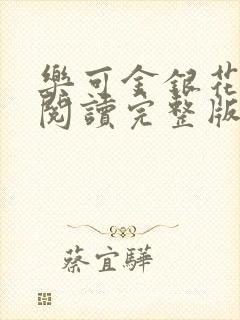 樂可金銀花
閱讀完整版
蔡宜驊